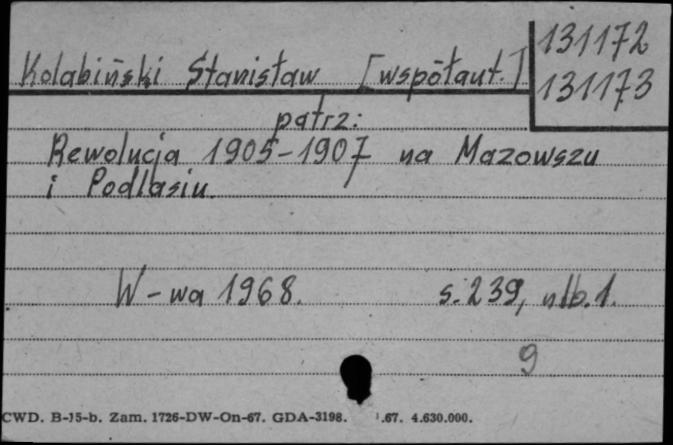 131172
Kolabiński Stanisław [współaut.]
131173
patrz:
Rewolucja 1905-1907 na Mazowszu
i Podlasiu.
W-wa 1968. s. 239, nlb. 1.
9
CWD. B-15-b. Zam. 1726-DW-On-67. GDA-3198. .67. 4.630.000.